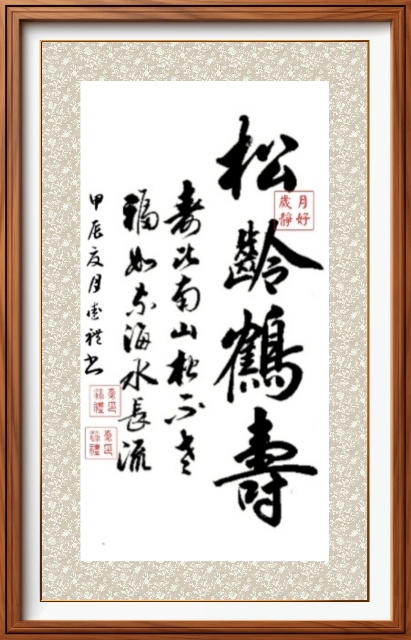 松齡鶴壽
歲月
靜好
寿比南山松不老
福如东海水長流
甲辰夏月 禮书